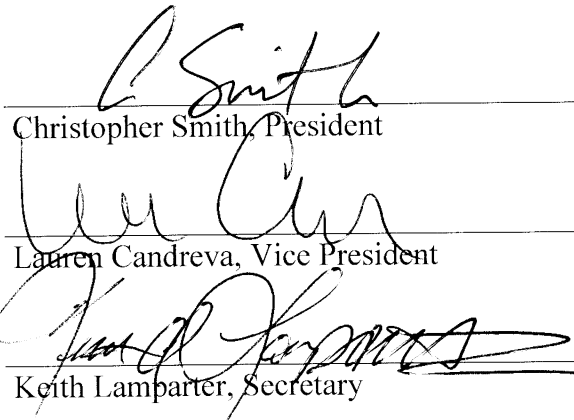 C Smith
Christopher Smith, President
Lauren Candreva, Vice President
Keith Lamparter, Secretary